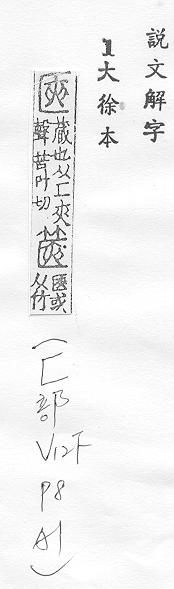 說文解字
1大徐本
匧
藏也从匚夾
聲苦叶切
篋
匧或
从竹
(匚部 V12下 P8 A1)